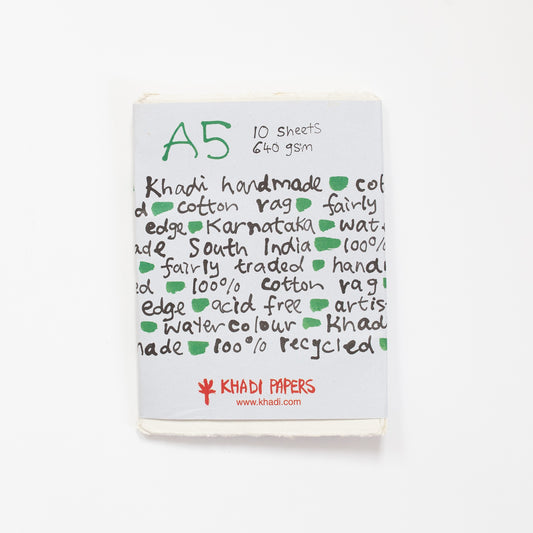 A5 10 sheets
640 gsm
Khadi handmade cot
d cotton rag fairly
edge Karnataka wat
ade South India 100%
fairly traded handm
ed 100% cotton rag
edge acid free artis
watercolour Khad
made 100% recycled
KHADI PAPERS
www.khadi.com